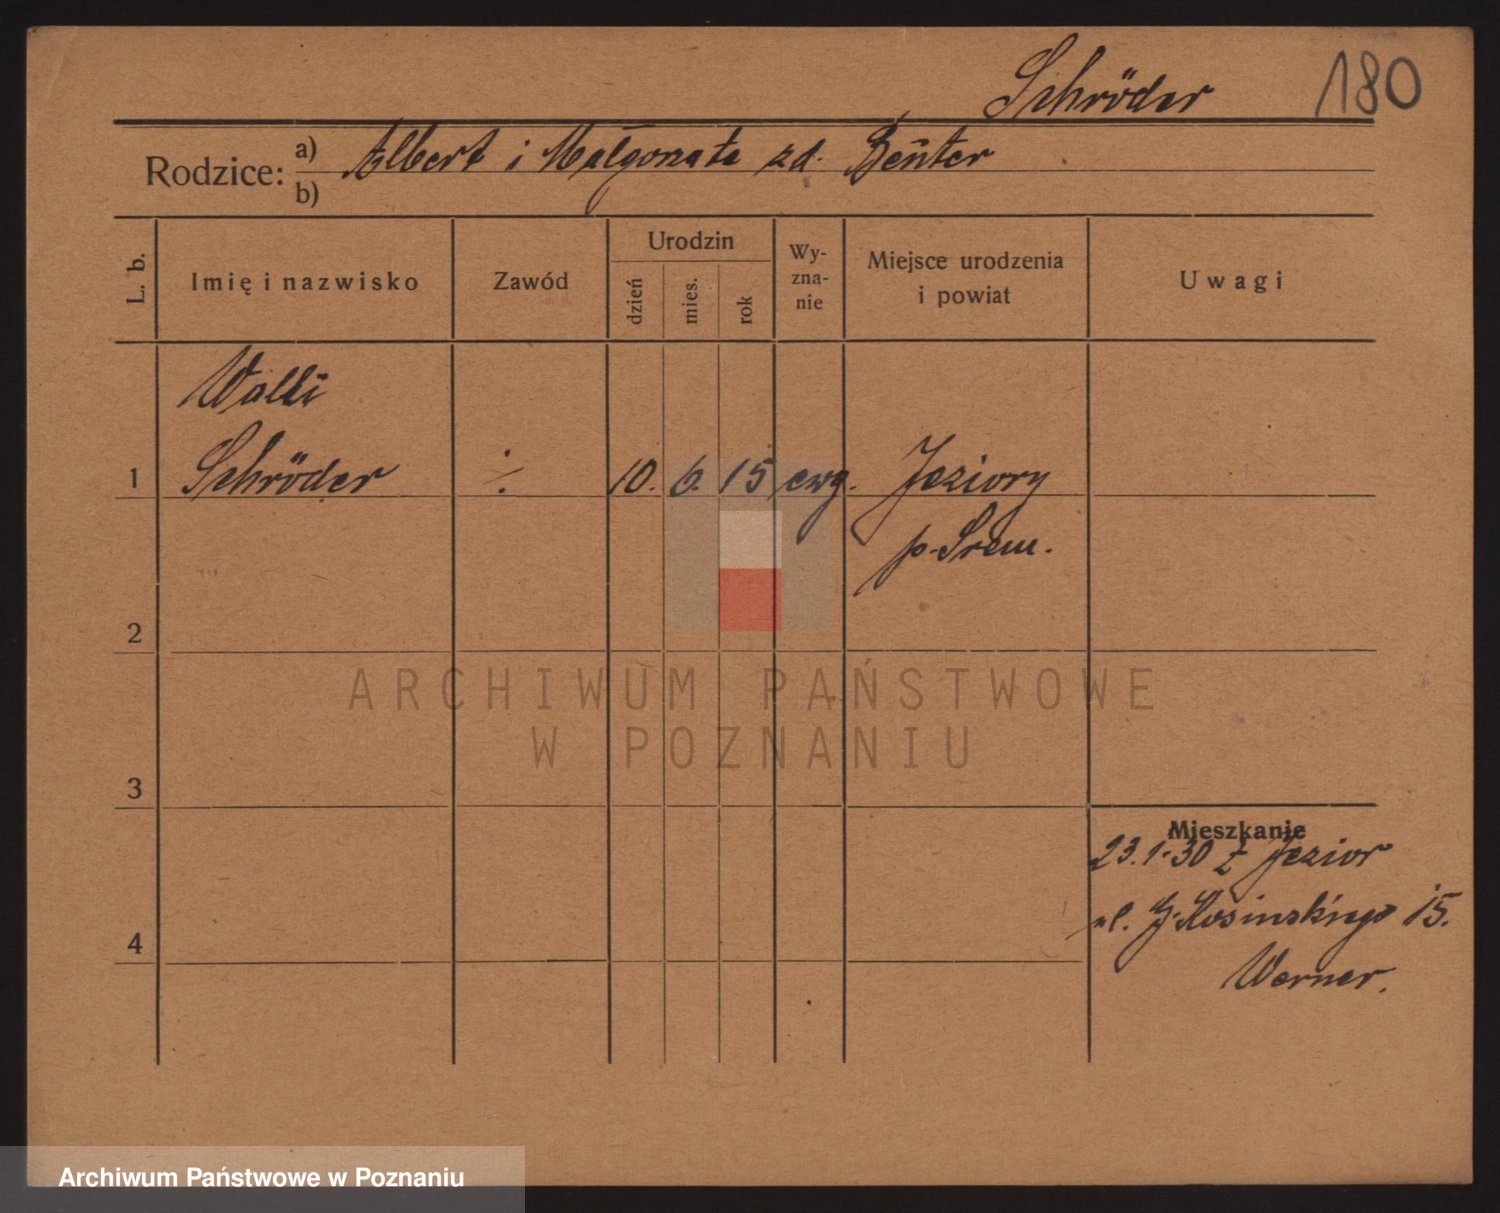 Schröder 180
Rodzice: a) Albert i Małgorzata zd. Beuter
b)
L. b. Imię i nazwisko Zawód Urodzin dzień mies. rok Wy-zna-nie Miejsce urodzenia i powiat Uwagi
Walli
1 Schröder ./. 10. 6. 15 ewg. Jeziory
p. Śrem.
2
ARCHIWUM PAŃSTWOWE
W POZNANIU
3
Mieszkanie
23.1.30 z Jezior
ul. Kosinskiego 15.
4
Werner.
Archiwum Państwowe w Poznaniu